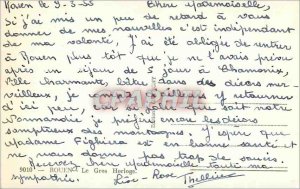 Rouen le 9-3-55 Chère Mademoiselle,
Si j'ai mis un peu de retard à vous
donner de mes nouvelles c'est indépendant
de ma volonté, j'ai été obligée de rentrer
à Rouen plus tôt que je ne l'avais prévu
après un séjour de 5 jours à Chamonix,
ville charmante, bâtie dans des décors mer-
veilleux, je compte
d'ici peu, si notre
Normandie je préfère encore les décors
somptueux des montagnes. J'espère que
Madame Fighiera est en bonne santé et
ne vous donne pas trop de soucis.
Recevez chère Mademoiselle toute ma
sympathie.
9010 ROUEN Le Gros Horloge.
Rose